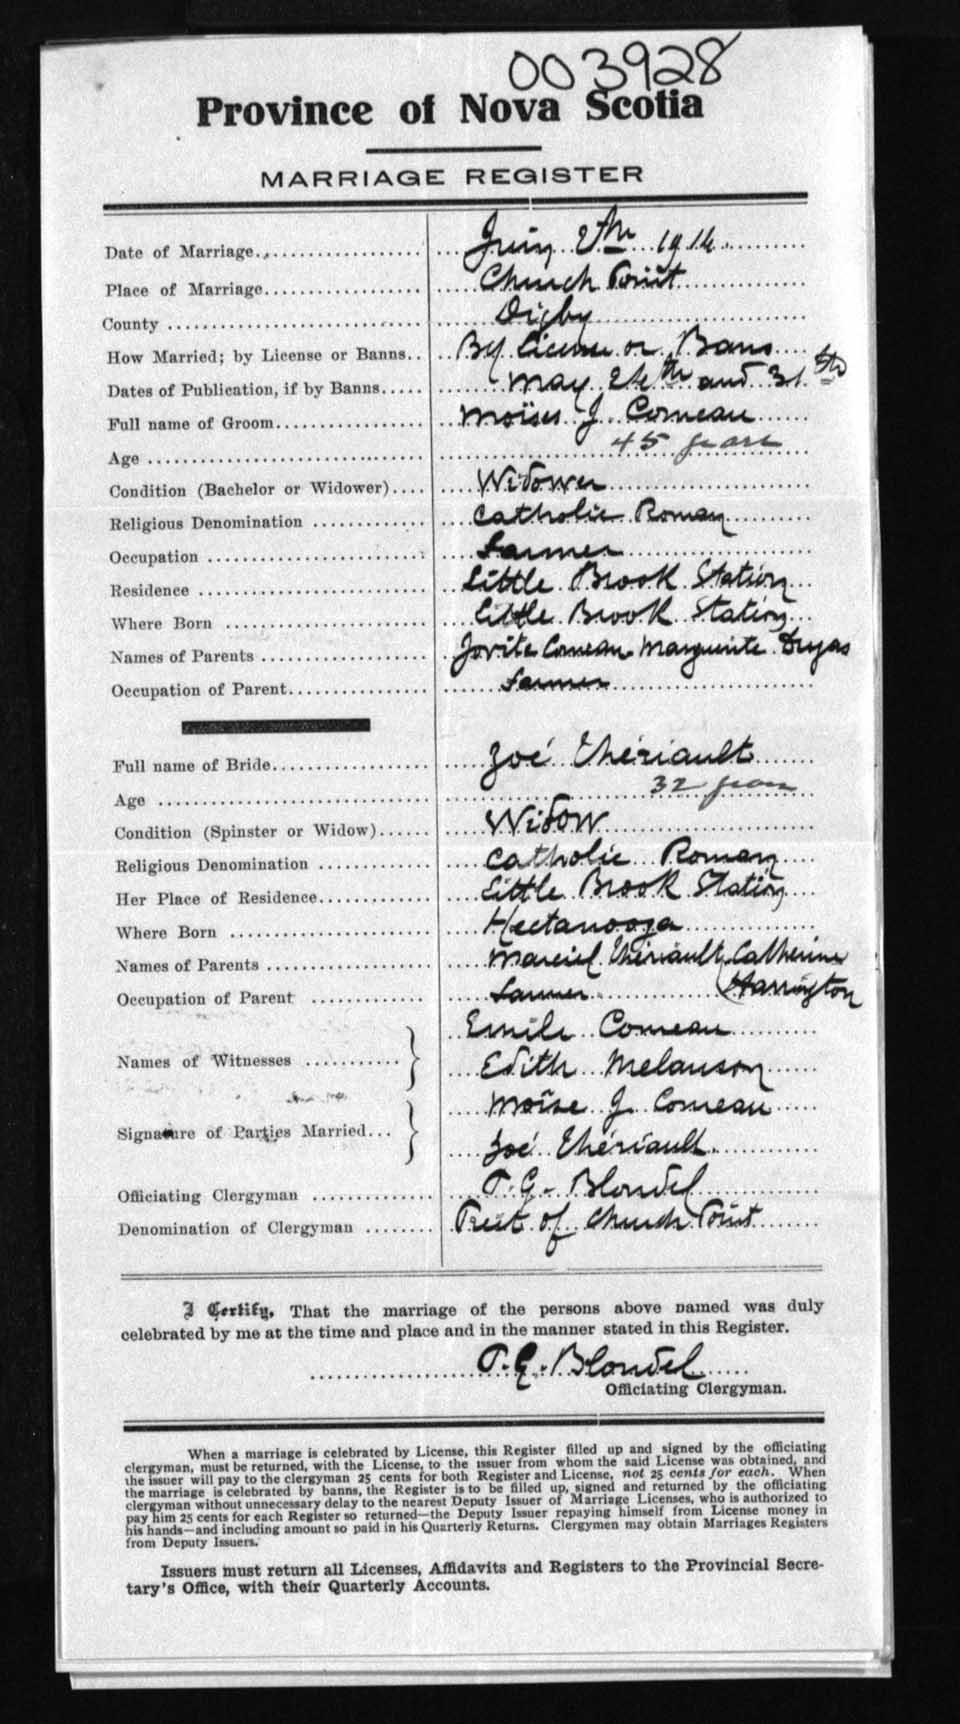 003928
Province of Nova Scotia
MARRIAGE REGISTER
Date of Marriage. Juin 2th 1914.
Place of Marriage Church Point
County Digby
How Married; by License or Banns By License or Bans
Dates of Publication, if by Banns May 24th and 31 sts
Full name of Groom Moïses J. Comeau
Age 45 years
Condition (Bachelor or Widower) Widower
Religious Denomination Catholic Roman
Occupation Farmer
Residence Little Brook Station
Where Born Little Brook Station
Names of Parents Jovite Comeau Marguerite Dugas
Occupation of Parent Farmer
Full name of Bride Zoé Thériault
Age 32 years
Condition (Spinster or Widow) Widow
Religious Denomination Catholic Roman
Her Place of Residence Little Brook Station
Where Born Hectanooga
Names of Parents Marciel Thériault, Catherine
Occupation of Parent Farmer (Harrington
Emile Comeau
Names of Witnesses }
Edith Melanson
Moïse J. Comeau
Signature of Parties Married }
Zoé Thériault.
Officiating Clergyman P. G. Blondel
Denomination of Clergyman Priest of Church Point
I Certify, That the marriage of the persons above named was duly
celebrated by me at the time and place and in the manner stated in this Register.
P. G. Blondel
Officiating Clergyman.
When a marriage is celebrated by License, this Register filled up and signed by the officiating
clergyman, must be returned, with the License, to the issuer from whom the said License was obtained, and
the issuer will pay to the clergyman 25 cents for both Register and License, not 25 cents for each. When
the marriage is celebrated by banns, the Register is to be filled up, signed and returned by the officiating
clergyman without unnecessary delay to the nearest Deputy Issuer of Marriage Licenses, who is authorized to
pay him 25 cents for each Register so returned—the Deputy Issuer repaying himself from License money in
his hands—and including amount so paid in his Quarterly Returns. Clergymen may obtain Marriages Registers
from Deputy Issuers.
Issuers must return all Licenses, Affidavits and Registers to the Provincial Secre-
tary's Office, with their Quarterly Accounts.